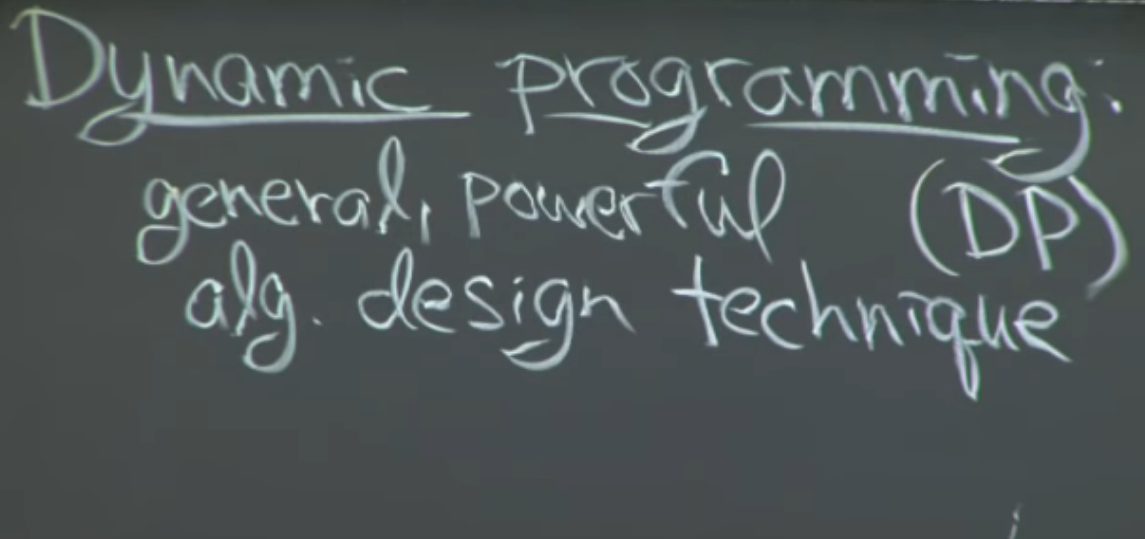 Dynamic programming:
general, powerful (DP)
alg. design technique